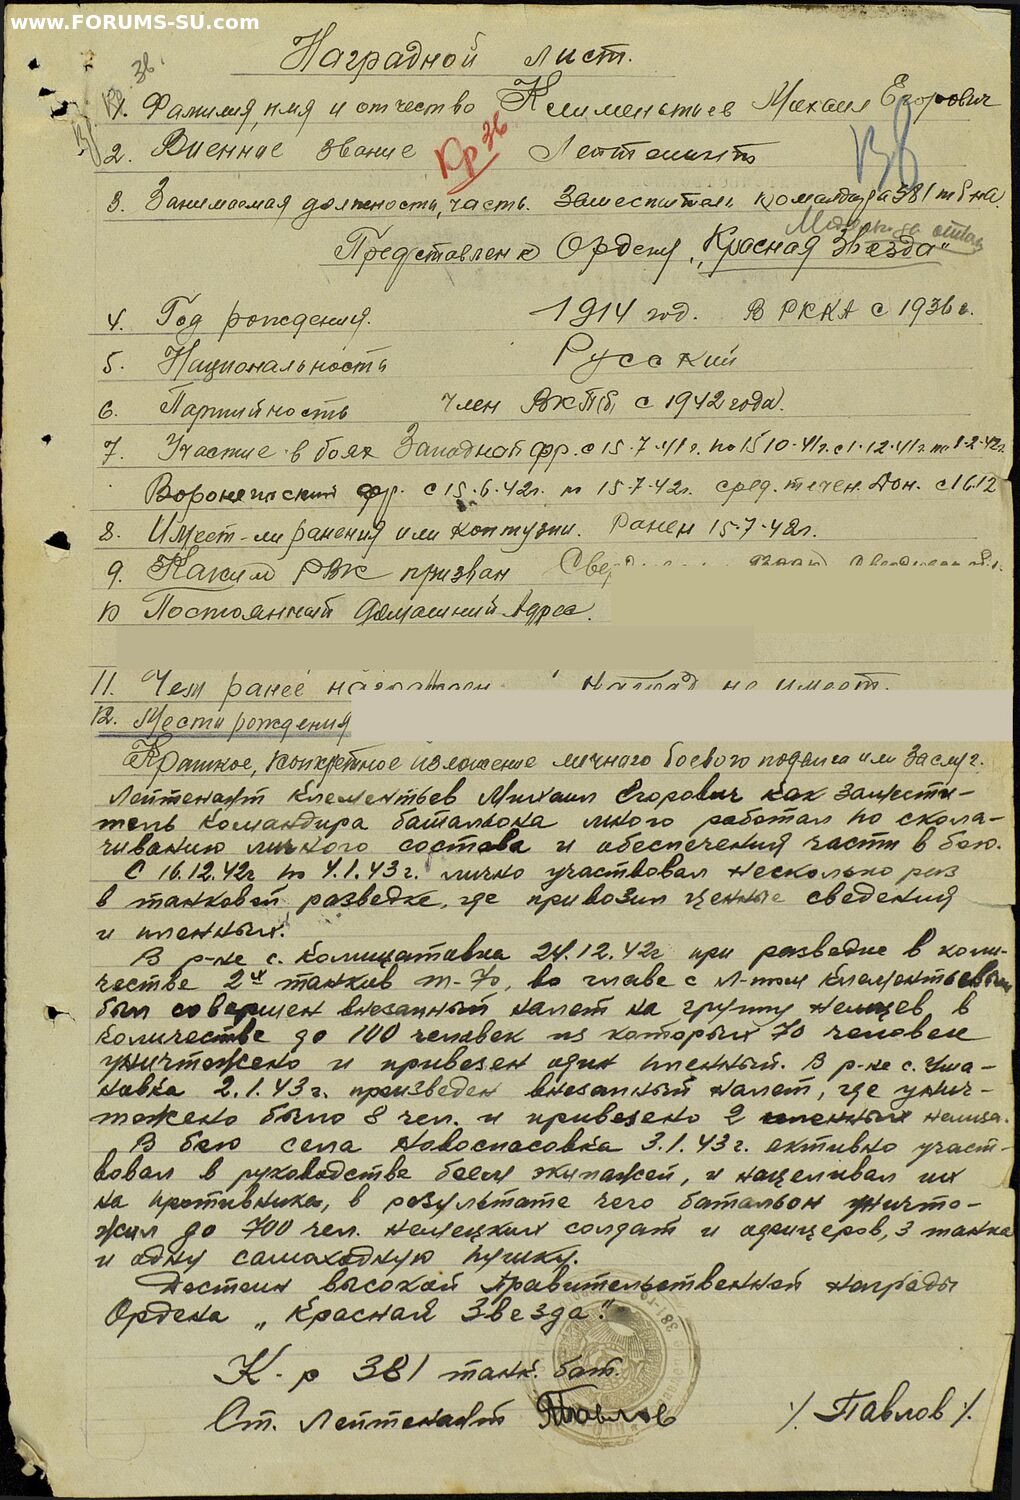 www.FORUMS-SU.com
Наградной лист.
Кр. Зв.
1. Фамилия, имя и отчество Клементьев Михаил Егорович
2. Военное звание Лейтенант
Кр Зв
3. Занимаемая должность, часть. Заместитель командира 381 тб-на
Представлен к Ордену „Красная Звезда"
4. Год рождения. 1914 год. В РККА с 1936 г.
5. Национальность Русский
6. Партийность член ВКП(б) с 1942 года.
7. Участие в боях Западной фр. с 15.7.41г. по 15 10.41г. с 1.12.41г. по 1.2.42г.
Воронежский фр. с 15.6.42г. по 15.7.42г. сред. течен. Дон. с 16.12
8. Имеет-ли ранения или контузии. Ранен 15.7.42г.
9. Каким РВК призван
10 Постоянный домашний Адрес.
11. Чем ранее награжден наград не имеет.
12. Место рождения
Краткое, конкретное изложение личного боевого подвига или заслуг.
Лейтенант Клементьев Михаил Егорович как замести-
тель командира батальона много работал по скола-
чиванию личного состава и обеспечения части в бою.
С 16.12.42г по 4.1.43г. лично участвовал несколько раз
в танковой разведке, где привозил ценные сведения
и пленных.
В р-не с. Комишатовка 24.12.42г при разведке в коли-
честве 2х танков т-70, во главе с л-том Клементьевым
был совершен внезапный налет на группу немцев в
количестве до 100 человек из которых 70 человек
уничтожено и привезен один пленный. В р-не с. Ума-
новка 2.1.43г. произведен внезапный налет, где унич-
тожено было 8 чел. и привезено 2 пленных немца.
В бою села Новоспасовка 3.1.43г. активно участ-
вовал в руководстве боем экипажей, и нацеливал их
на противника, в результате чего батальон уничто-
жил до 700 чел. немецких солдат и офицеров, 3 танка
и одну самоходную пушку.
Достоин высокой правительственной награды
Ордена „Красная Звезда".
К-р 381 танк. бат.
Ст. Лейтенант Павлов /Павлов/.